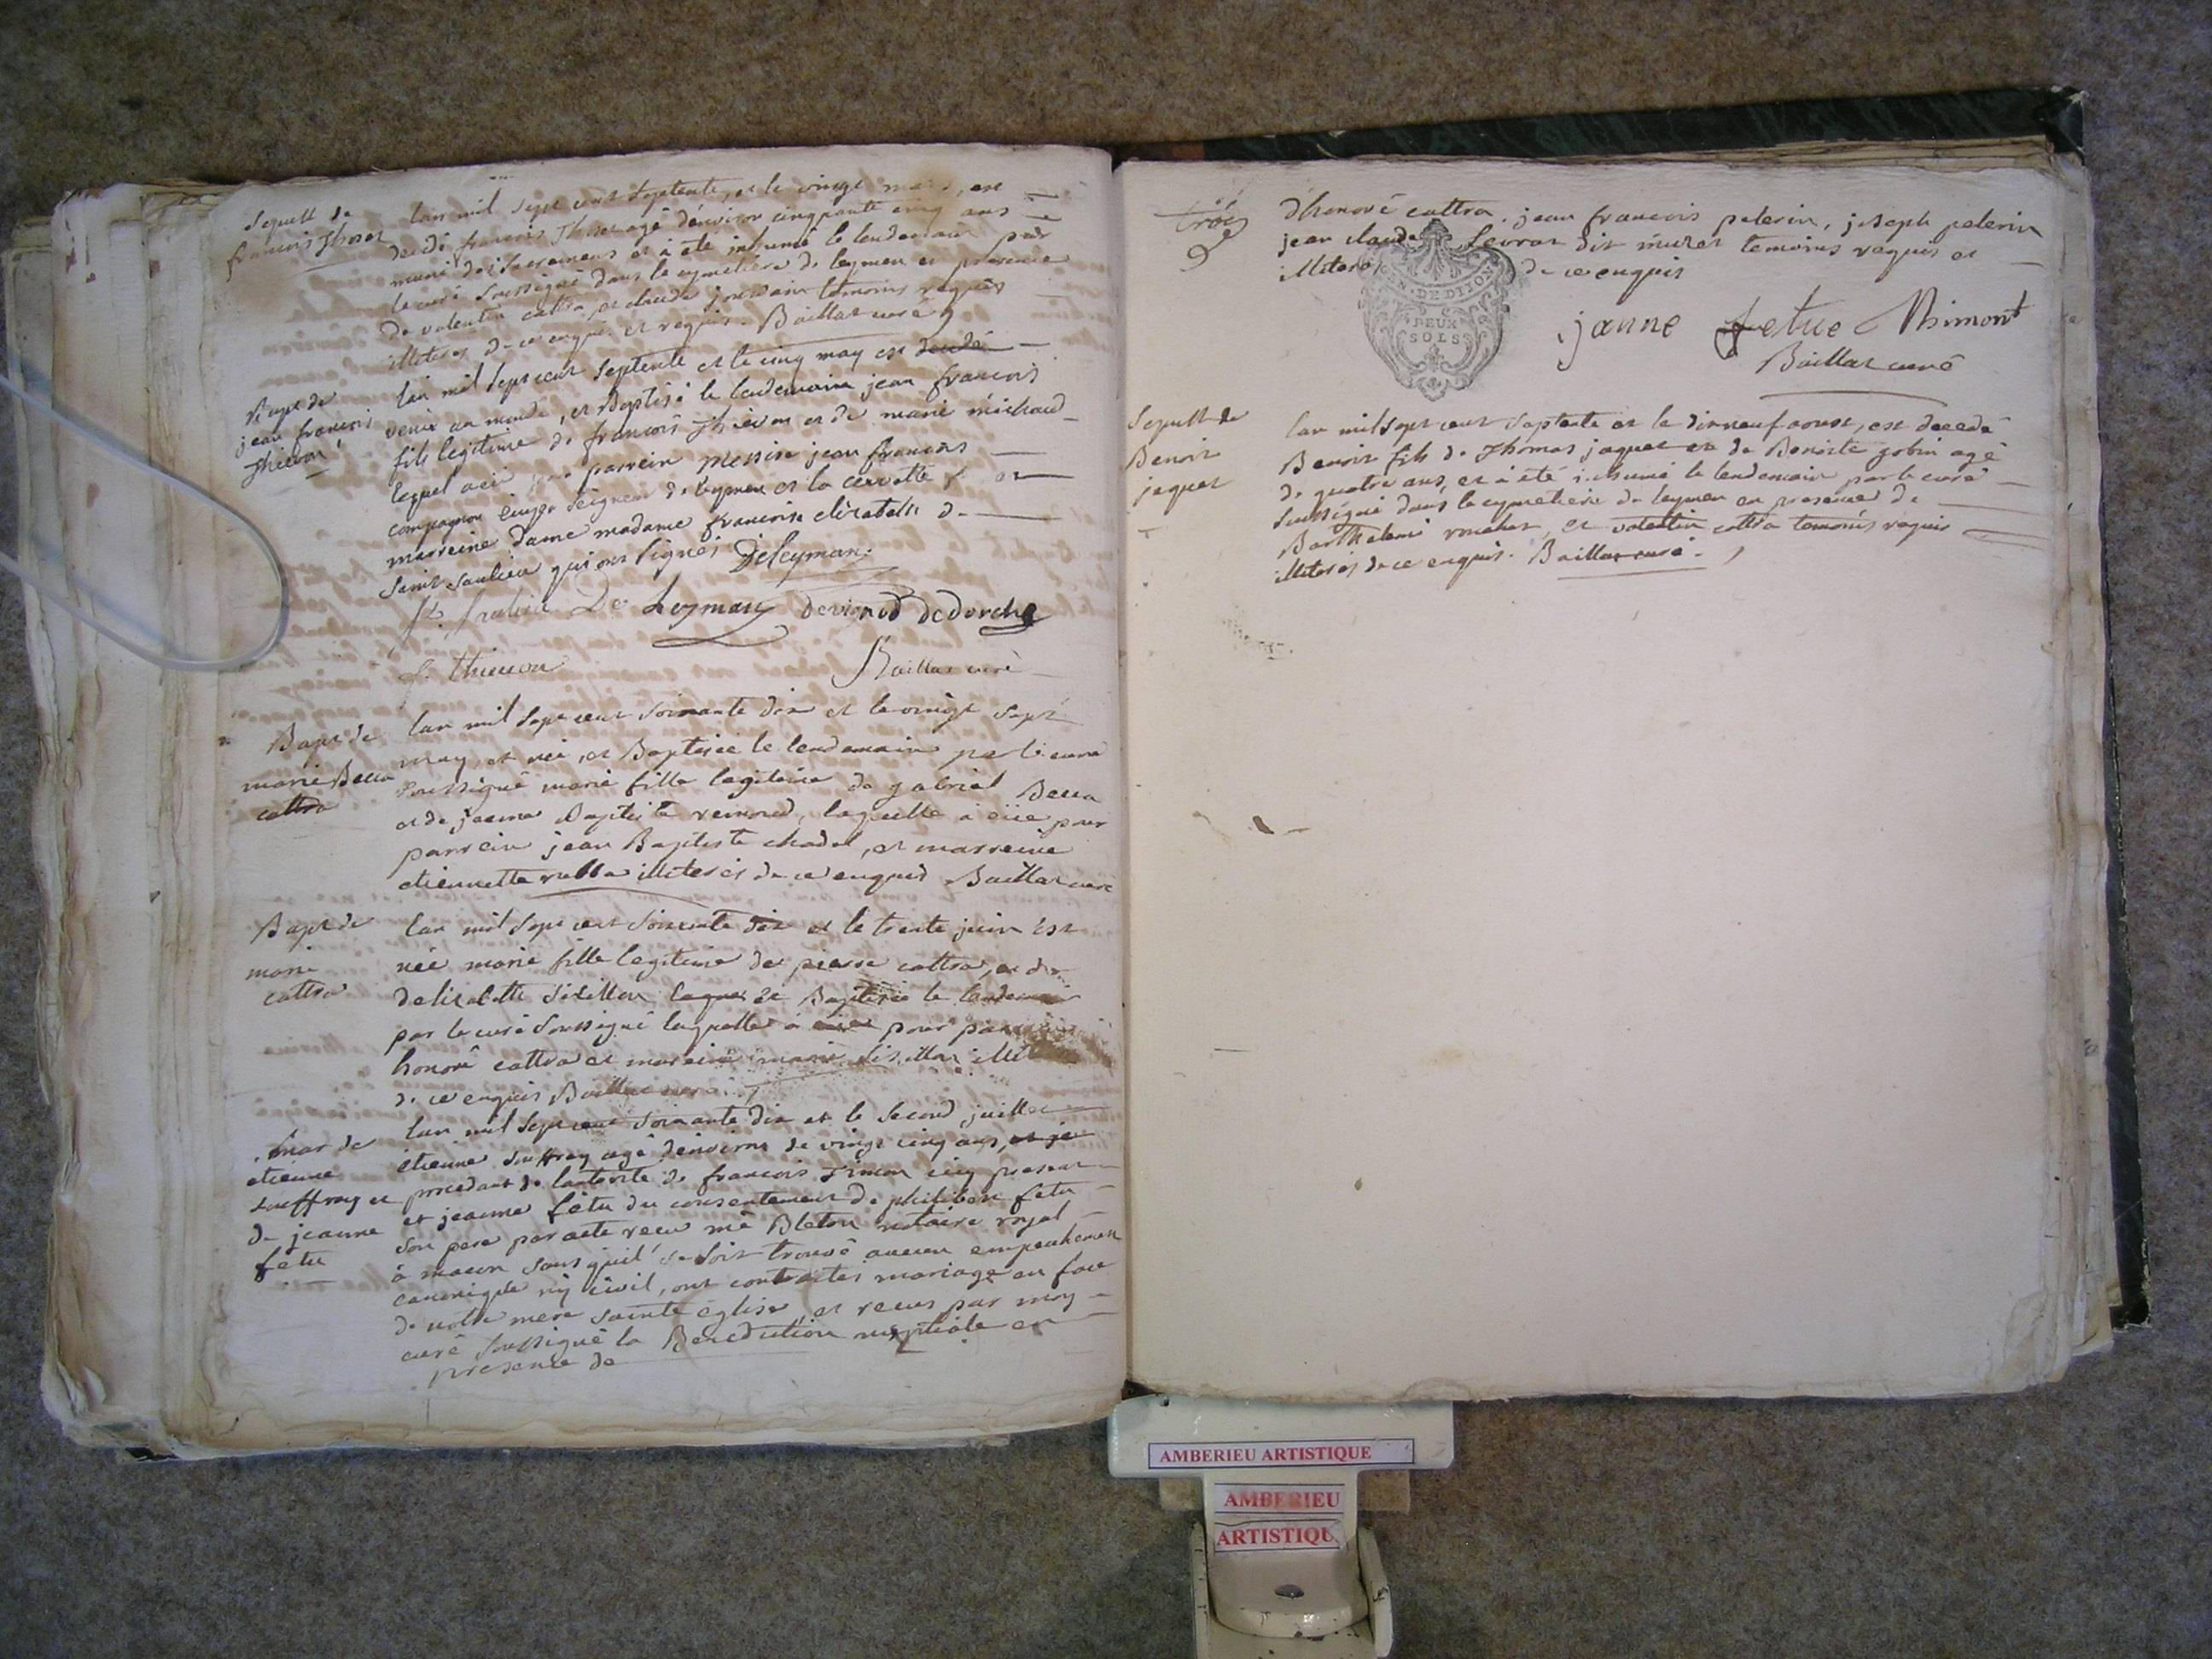 Sepult de
francois Thoset
lan mil sept cent septente, et le vingt mars, est
decédé francois Thoset agé denviron cinquante cinq ans
muni des sacremens et à été inhumé le lendemain par
le curé soussigné dans le cymetiére de leymen en presence
de valentin cattra, et claude jourdain temoins requis
illiteres de ce enquis et requis. Baillat curé
Bapt de
jean francois
Thievon
lan mil sept cent septente et le cinq may est
venu au monde, et Baptisé le lendemain jean francois
fils legitime de francois Thievon et de marie michaud
lequel a eü pour parrein Messire jean francois
compagnon seigneur de leymen et la cervette et
marreine dame madame francoise elizabeth de
saint saulieu qui ont signés Deleyman.
St. saulieu De Leyman devignod dedorche
f. thievon Baillat curé
Bapt de
marie Beca
cattra
lan mil sept cent soixante dix et le vingt sept
may, est née, et Baptisée le lendemain par le curé
soussigné marie fille legitime de gabriel Beca
et de jeanne Baptiste remond, laquelle à eüe pour
parrein jean Baptiste chadel, et marreine
etiennette rubba illiterés de ce enquis Baillat curé
Bapt de
marie
cattra
lan mil sept cent soixante dix et le trente juin est
née marie fille legitime de pierre cattra, et de
delizabette Baptisée le lendemain
par le curé soussigné laquelle à eüe pour
honoré cattra et marreine marie
de ce enquis Baillat curé
mar de
etienne
souffray et
de jeanne
fetu
lan mil sept cent soixante dix et le second juillet
etienne souffray agé denviron de vingt cinq ans,
procedant de lautorité de francois Timon icy present
et jeanne fetu du consentement de philibert fetu
son pere par acte recu mé Bleton notaire royal
à macon sans quil se soit trouvé aucun empechement
canonique ny civil, ont contractés mariage en face
de notre mere sainte église, et recus par moy
curé soussigné la Benediction nuptiale en
presence de
dhonoré cattra, jean francois pelerin, joseph pelerin
jean claude sevrat dit muret temoins requis et
illiterés de ce enquis
GEN. DE DIJON
DEUX
SOLS
janne fetue Thimont
Baillat curé
Sepult de
Benoit
jaquet
lan mil sept cent septente et le dixneuf aoust, est decedé
Benoit fils de Thomas jaquet et de Benoite gobin agé
de quatre ans, et à été inhumé le lendemain par le curé
soussigné dans le cymetiere de leymen en presence de
Barthelemi rouchet, et valentin cattra temoins requis
illiterés de ce enquis. Baillat curé.
AMBERIEU ARTISTIQUE
AMBERIEU
ARTISTIQU